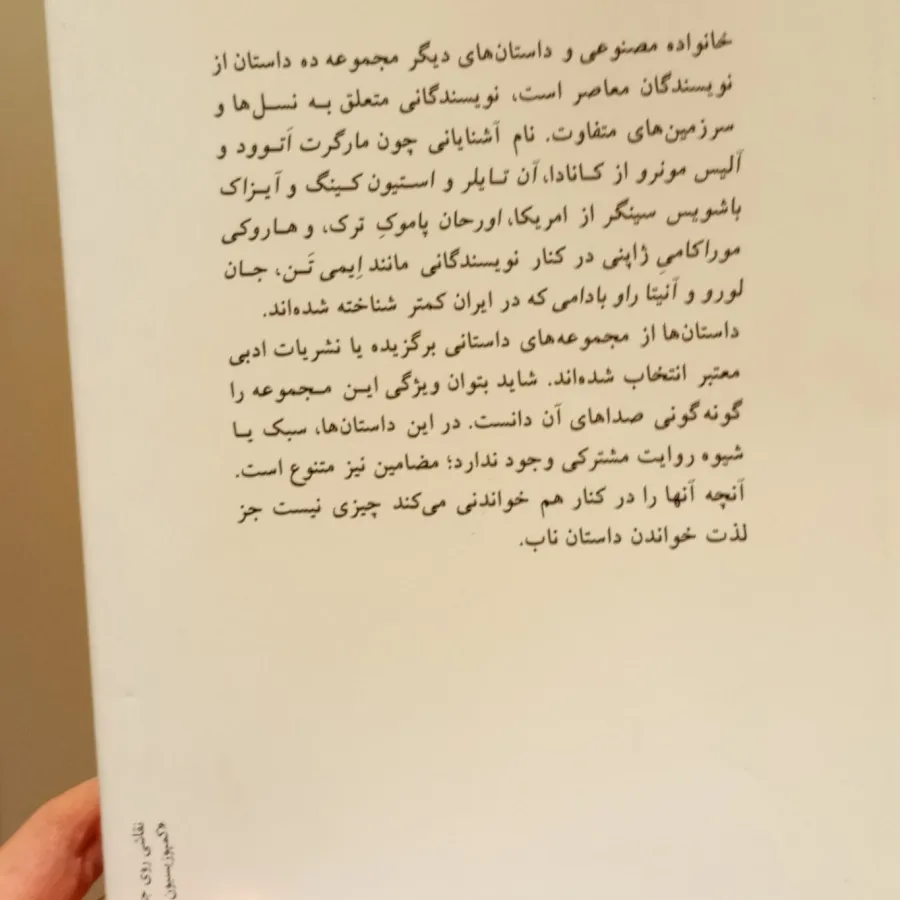 خانواده مصنوعی و داستان‌های دیگر مجموعه ده داستان از
نویسندگان معاصر است، نویسندگانی متعلق به نسل‌ها و
سرزمین‌های متفاوت. نام آشنایانی چون مارگرت اَتوود و
آلیس مونرو از کانادا، آن تایلر و استیون کینگ و آیزاک
باشویس سینگر از امریکا، اورحان پاموکِ ترک، و هاروکی
موراکامیِ ژاپنی در کنار نویسندگانی مانند اِیمی تَن، جان
لورو و آنیتا راو بادامی که در ایران کمتر شناخته شده‌اند.
داستان‌ها از مجموعه‌های داستانی برگزیده یا نشریات ادبی
معتبر انتخاب شده‌اند. شاید بتوان ویژگی این مجموعه را
گونه‌گونی صداهای آن دانست. در این داستان‌ها، سبک یا
شیوه روایت مشترکی وجود ندارد؛ مضامین نیز متنوع است.
آنچه آنها را در کنار هم خواندنی می‌کند چیزی نیست جز
لذت خواندن داستان ناب.
نقاشی روی
«کمپوزیسیون